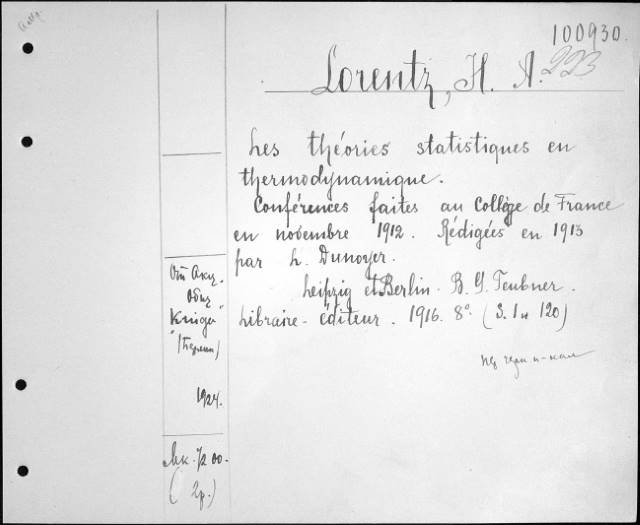 100930.
Lorentz, H. A. 223
Les théories statistiques en
thermodynamique.
Conférences faites au Collège de France
en novembre 1912. Rédigées en 1913
par L. Dunoyer.
Leipzig et Berlin. B. G. Teubner.
Libraire-éditeur. 1916. 8°. (S. 1 и 120)
От Акц.
Общ.
"Книга"
(Берлин)
1924.
Мк. 7/2 00.
( 2р.)